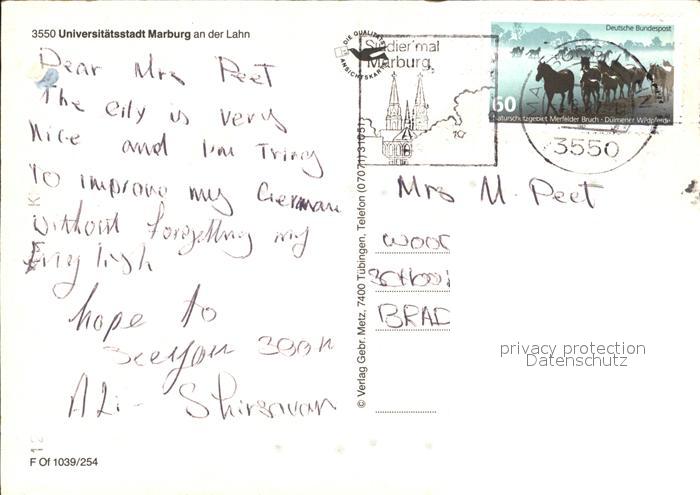 3550 Universitätsstadt Marburg an der Lahn
Dear Mrs Peet
The city is very
Nice and I'm Triny
To improve my German
without forgetting my
English
hope to
see you soon
Ali- Shirsavar
F Of 1039/254
DIE QUALITÄTS
ANSICHTSKARTE
© Verlag Gebr. Metz, 7400 Tübingen, Telefon (07071) 31051
Studier mal
Marburg
Deutsche Bundespost
60
Naturschutzgebiet Merfelder Bruch · Dülmener Wildpferde
3550
Mrs M. Peet
WOOD
SCHOOL
BRAD
privacy protection
Datenschutz